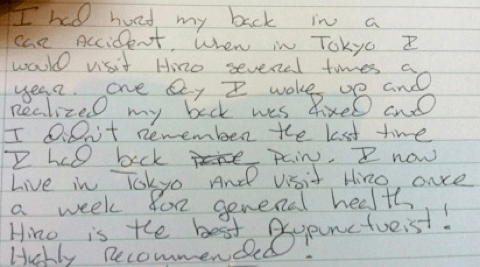 I had hurt my back in a
car accident. When in Tokyo I
would visit Hiro several times a
year. One day I woke up and
realized my back was fixed and
I didn't remember the last time
I had back pain. I now
live in Tokyo and visit Hiro once
a week for general health
Hiro is the best Acupuncturist!
Highly recommended!